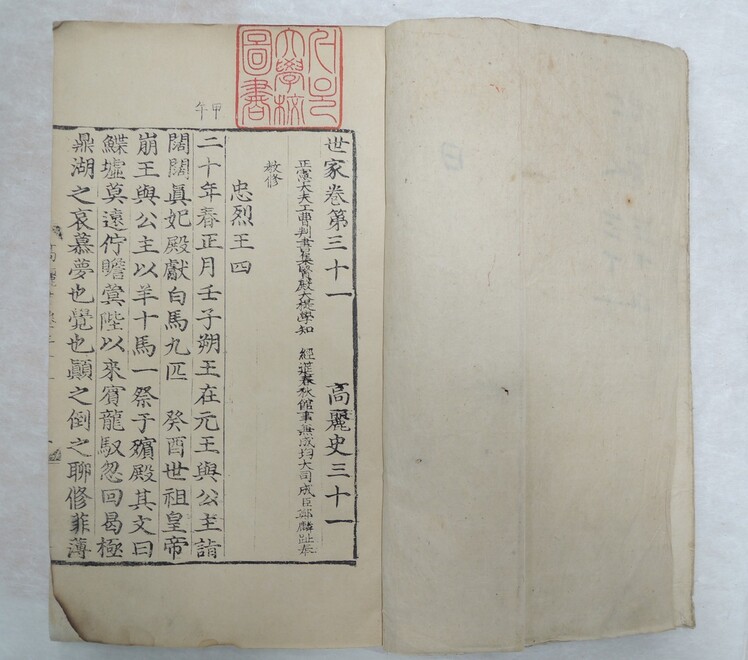 大學校
圖書
甲午
世家卷第三十一 高麗史三十一
正憲大夫工曹判書集賢殿大提學知 經筵春秋館事兼成均大司成臣鄭麟趾奉
敎修
忠烈王四
二十年春正月壬子朔王在元王與公主詣
闊闊眞妃殿獻白馬九匹 癸酉世祖皇帝
崩王與公主以羊十馬一祭于殯殿其文曰
鰈墟莫遠佇瞻蓂陛以來賓龍馭忽回曷極
鼎湖之哀慕夢也覺也顚之倒之聊修菲薄